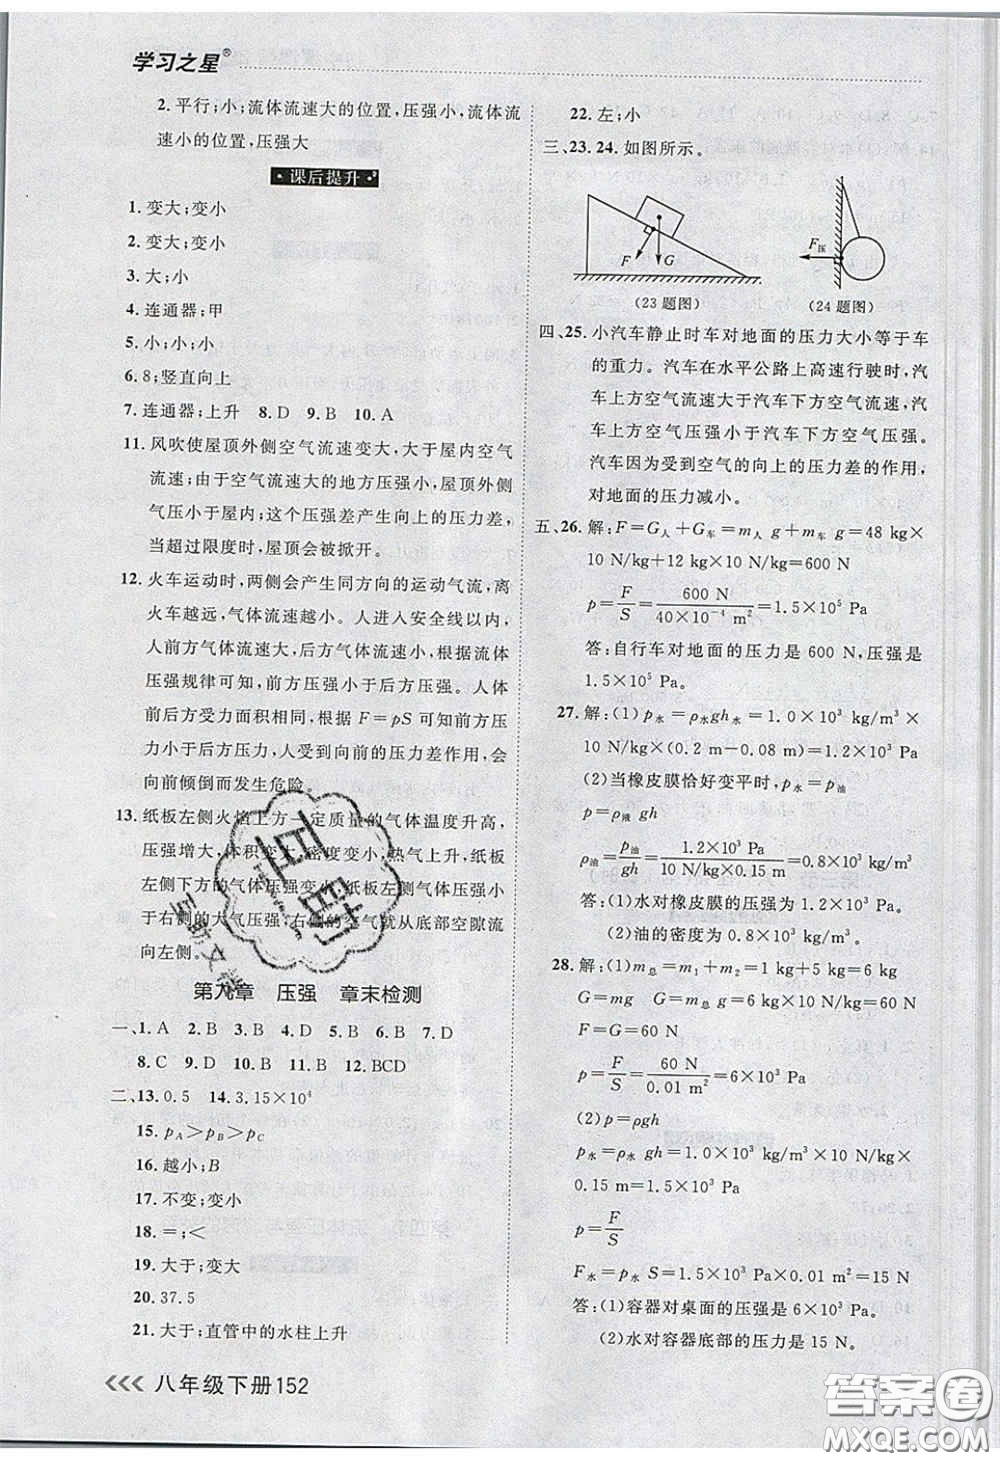 学习之星®
2. 平行;小;流体流速大的位置,压强小,流体流
速小的位置,压强大
课后提升
1. 变大;变小
2. 变大;变小
3. 大;小
4. 连通器;甲
5. 小;小;小
6. 8;竖直向上
7. 连通器;上升 8. D 9. B 10. A
11. 风吹使屋顶外侧空气流速变大,大于屋内空气
流速;由于空气流速大的地方压强小,屋顶外侧
气压小于屋内;这个压强差产生向上的压力差,
当超过限度时,屋顶会被掀开。
12. 火车运动时,两侧会产生同方向的运动气流,离
火车越远,气体流速越小。人进入安全线以内,
人前方气体流速大,后方气体流速小,根据流体
压强规律可知,前方压强小于后方压强。人体
前后方受力面积相同,根据 F=pS 可知前方压
力小于后方压力,人受到向前的压力差作用,会
向前倾倒而发生危险。
13. 纸板左侧火焰上方一定质量的气体温度升高,
压强增大,体积变大,密度变小,热气上升,纸板
左侧下方的气体压强变小,纸板左侧气体压强小
于右侧的大气压强,右侧的空气就从底部空隙流
向左侧。
第九章 压强 章末检测
一、1. A 2. B 3. B 4. D 5. B 6. B 7. D
8. C 9. D 10. B 11. B 12. BCD
二、13. 0.5 14. 3.15×10⁴
15. p_A>p_B>p_C
16. 越小;B
17. 不变;变小
18. =;<
19. 大于;变大
20. 37.5
21. 大于;直管中的水柱上升
八年级下册152
22. 左;小
三、23. 24. 如图所示。
F G F压
(23题图) (24题图)
四、25. 小汽车静止时车对地面的压力大小等于车
的重力。汽车在水平公路上高速行驶时,汽
车上方空气流速大于汽车下方空气流速,汽
车上方空气压强小于汽车下方空气压强。
汽车因为受到空气的向上的压力差的作用,
对地面的压力减小。
五、26. 解:F=G人+G车=m人 g+m车 g=48 kg×
10 N/kg+12 kg×10 N/kg=600 N
p=F/S=600 N/40×10⁻⁴ m²=1.5×10⁵ Pa
答:自行车对地面的压力是 600 N,压强是
1.5×10⁵ Pa。
27. 解:(1)p水=ρ水gh水=1.0×10³ kg/m³×
10 N/kg×(0.2 m-0.08 m)=1.2×10³ Pa
(2)当橡皮膜恰好变平时,p水=p油
p=ρ液 gh
ρ油=p油/gh=1.2×10³ Pa/10 N/kg×0.15 m=0.8×10³ kg/m³
答:(1)水对橡皮膜的压强为 1.2×10³ Pa。
(2)油的密度为 0.8×10³ kg/m³。
28. 解:(1)m总=m1+m2=1 kg+5 kg=6 kg
G=mg G=m总 g=6 kg×10 N/kg=60 N
F=G=60 N
p=F/S=60 N/0.01 m²=6×10³ Pa
(2)p=ρgh
p水=ρ水gh=1.0×10³ kg/m³×10 N/kg×
0.15 m=1.5×10³ Pa
p=F/S
F水=p水 S=1.5×10³ Pa×0.01 m²=15 N
答:(1)容器对桌面的压强是 6×10³ Pa。
(2)水对容器底部的压力是 15 N。
答案圈
MXQE.COM